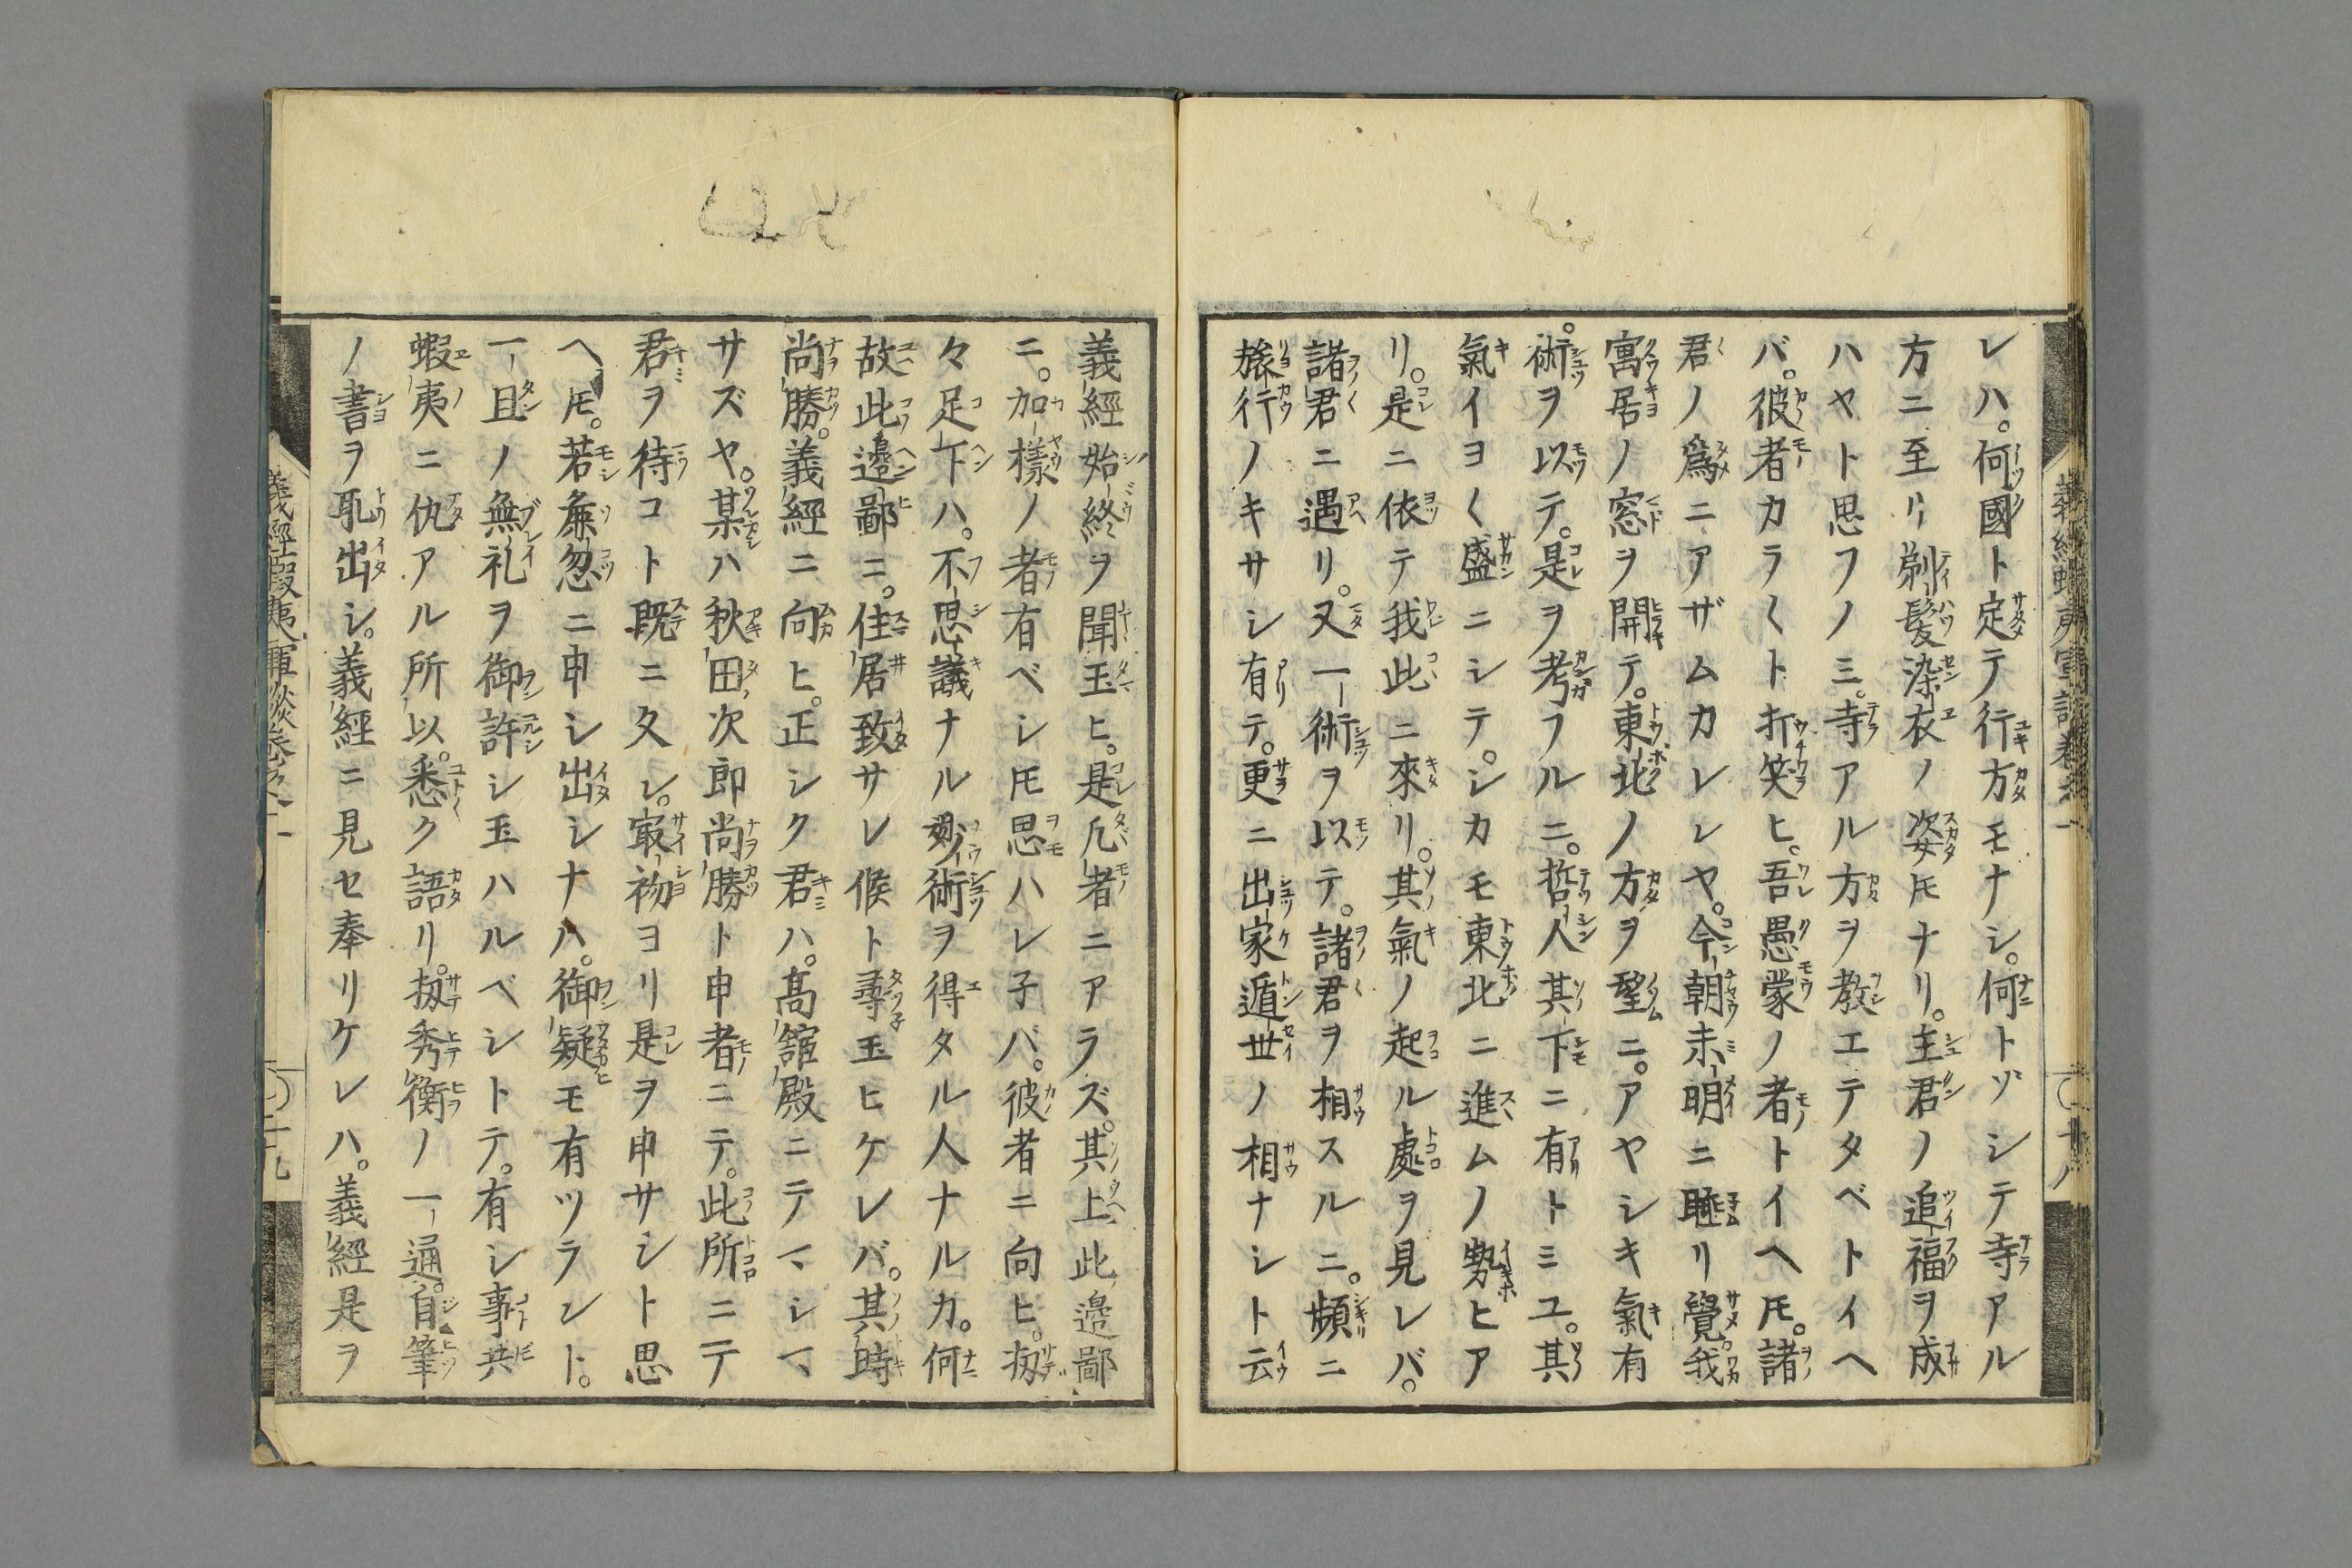 レハ。何國ト定テ行方モナシ。何トゾシテ寺アル
方ニ至リ剃髮染衣ノ姿𪜈ナリ。主君ノ追福ヲ成
ハヤト思フノミ。寺アル方ヲ教エテタベトイヘ
バ。彼者カラ〱ト打笑ヒ。吾愚蒙ノ者トイヘ𪜈。諸
君ノ爲ニアザムカレンヤ。今朝未明ニ睡リ覺。我
寓居ノ窓ヲ開テ。東北ノ方ヲ望ニ。アヤシキ氣有
。術ヲ以テ。是ヲ考フルニ。哲人其下ニ有トミユ。其
氣イヨ〱盛ニシテ。シカモ東北ニ進ムノ勢ヒア
リ。是ニ依テ我此ニ來リ。其氣ノ起ル處ヲ見レバ。
諸君ニ遇リ。又一術ヲ以テ。諸君ヲ相スルニ。頻ニ
旅行ノキサシ有テ。更ニ出家遁世ノ相ナシト云
義經始終ヲ聞玉ヒ。是凡者ニアラズ。其上此邉鄙
ニ。加樣ノ者有ベシ𪜈思ハレ子バ。彼者ニ向ヒ。扨
々足下ハ。不思議ナル妙術ヲ得タル人ナルカ。何
故此邉鄙ニ。住居致サレ候ト尋玉ヒケレバ。其時
尚勝。義經ニ向ヒ。正シク君ハ。髙舘殿ニテマシマ
サズヤ。某ハ秋田次郎尚勝ト申者ニテ。此所ニテ
君ヲ待コト既ニ久シ。冣初ヨリ是ヲ申サント思
ヘ𪜈。若麁忽ニ申シ出シナハ。御疑モ有ツラント。
一且ノ無礼ヲ御許シ玉ハルベシトテ。有シ事共
蝦夷ニ仇アル所以。悉ク語リ。扨秀衡ノ一通。自筆
ノ書ヲ取出シ。義經ニ見セ奉リケレハ。義經是ヲ
義經蝦夷軍談巻之一